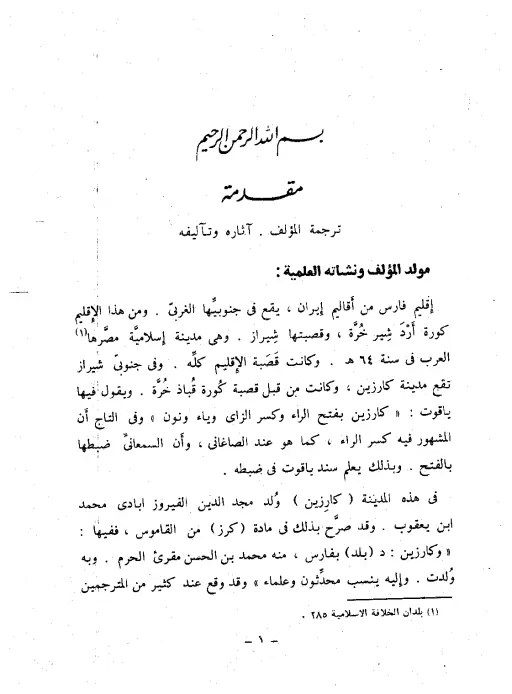 بسم الله الرحمن الرحيم
مقدمة
ترجمة المؤلف . آثاره وتآليفه
مولد المؤلف ونشأته العلمية :
إقليم فارس من أقاليم إيران ، يقع فى جنوبيّها الغربىّ . ومن هذا الإقليم
كورة أَرْدَ شِير خُرَّة ، وقصبتها شِيراز . وهى مدينة إسلاميّة مصَّرها(١)
العرب فى سنة ٦٤ هـ . وكانت قَصَبة الإقليم كلِّه . وفى جنوبىّ شيراز
تقع مدينة كارزين ، وكانت من قبل قصبة كُورة قُباذ خُرَّة . ويقول فيها
ياقوت : « كارزين بفتح الراء وكسر الزاى وياء ونون » وفى التاج أن
المشهور فيه كسر الراء ، كما هو عند الصاغانى ، وأن السمعانىّ ضبطها
بالفتح . وبذلك يعلم سند ياقوت فى ضبطه .
فى هذه المدينة ( كارزين ) وُلد مجد الدين الفيروز ابادى محمد
ابن يعقوب . وقد صرَّح بذلك فى مادة (كرز) من القاموس ، ففيها :
« وكارزين : د (بلد) بفارس ، منه محمد بن الحسن مقرئ الحرم . وبه
وُلدت . وإليه ينسب محدّثون وعلماء » وقد وقع عند كثير من المترجمين
(١) بلدان الخلافة الاسلامية ٢٨٥ .
– ١ –